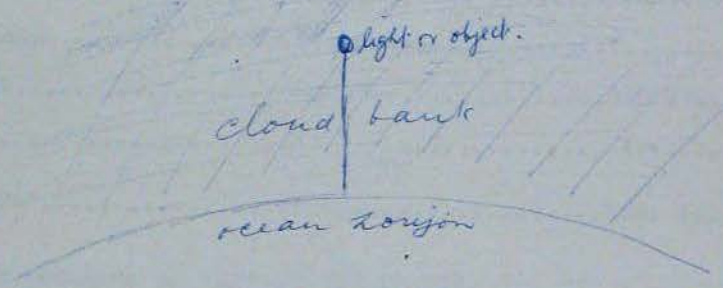 light or object.
cloud bank
ocean horizon